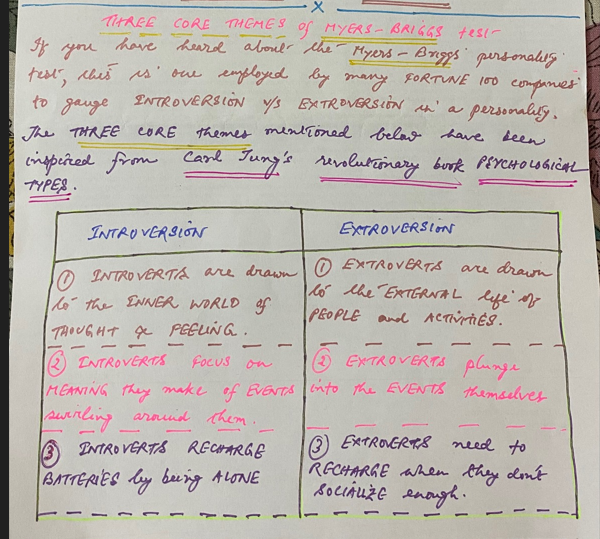 x
THREE CORE THEMES of MYERS-BRIGGS test
If you have heard about the Myers-Briggs personality
test, this is one employed by many FORTUNE 100 companies
to gauge INTROVERSION v/s EXTROVERSION in a personality.
The THREE CORE themes mentioned below have been
inspired from Carl Jung's revolutionary book PSYCHOLOGICAL
TYPES.
INTROVERSION
① INTROVERTS are drawn
to the INNER WORLD of
THOUGHT & FEELING.
② INTROVERTS FOCUS on
MEANING they make of EVENTS
swirling around them.
③ INTROVERTS RECHARGE
BATTERIES by being ALONE
EXTROVERSION
① EXTROVERTS are drawn
to the EXTERNAL life of
PEOPLE and ACTIVITIES.
② EXTROVERTS plunge
into the EVENTS themselves
③ EXTROVERTS need to
RECHARGE when they don't
SOCIALIZE enough.